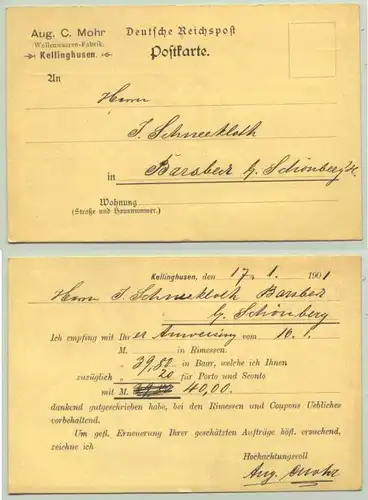 Aug. C. Mohr
Wollenwaaren-Fabrik.
Kellinghusen.
Deutsche Reichspost
Postkarte.
An
Herrn
J. Schneekloth
in Barsbek b/ Schönberg
Wohnung
(Straße und Hausnummer.)
Kellinghusen, den 17. 1. 1901
Herrn J. Schneekloth Barsbek
b/ Schönberg
Ich empfing mit Ihrer Anweisung vom 16. 1.
M. in Rimessen.
„ 39,80 in Baar, welche ich Ihnen
zuzüglich „ 20 für Porto und Sconto
mit M. 40,00.
dankend gutgeschrieben habe, bei den Rimessen und Coupons Uebliches
vorbehaltend.
Um gefl. Erneuerung Ihrer geschätzten Aufträge höfl. ersuchend,
zeichne ich
Hochachtungsvoll
Aug. C. Mohr